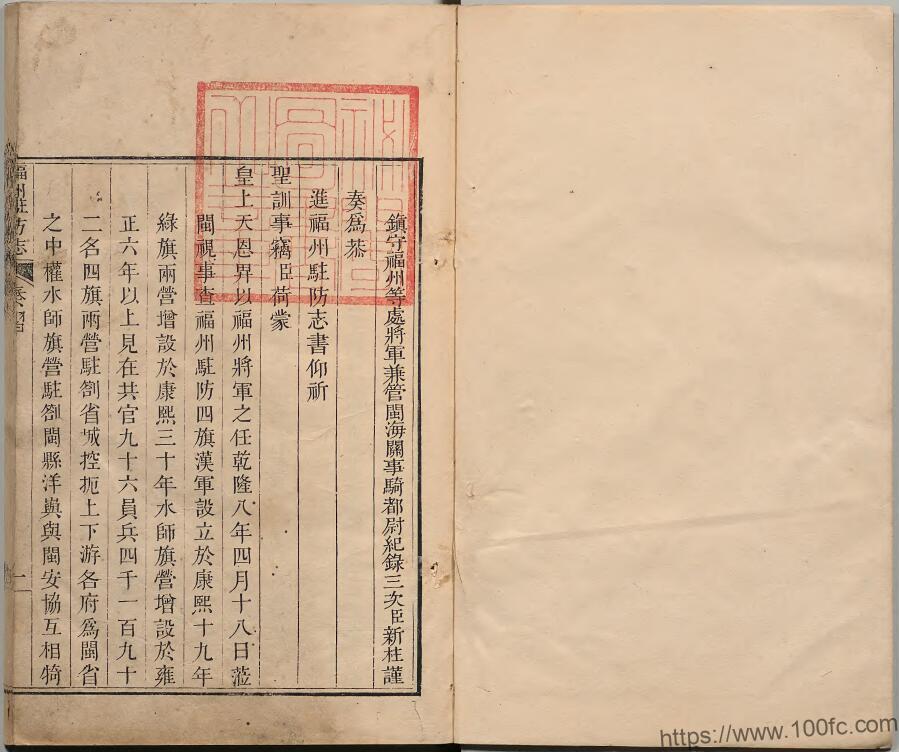 鎮守福州等處將軍兼管閩海關事騎都尉紀錄三次臣新柱謹
奏爲恭
進福州駐防志書仰祈
聖訓事竊臣荷蒙
皇上天恩畀以福州將軍之任乾隆八年四月十八日蒞
閩視事查福州駐防四旗漢軍設立於康熙十九年
綠旗兩營增設於康熙三十年水師旗營增設於雍
正六年以上見在共官九十六員兵四千一百九十
二名四旗兩營駐劄省城控扼上下游各府爲閩省
之中權水師旗營駐劄閩縣洋嶼與閩安協互相犄
福州駐防志
一
https://www.100fc.com